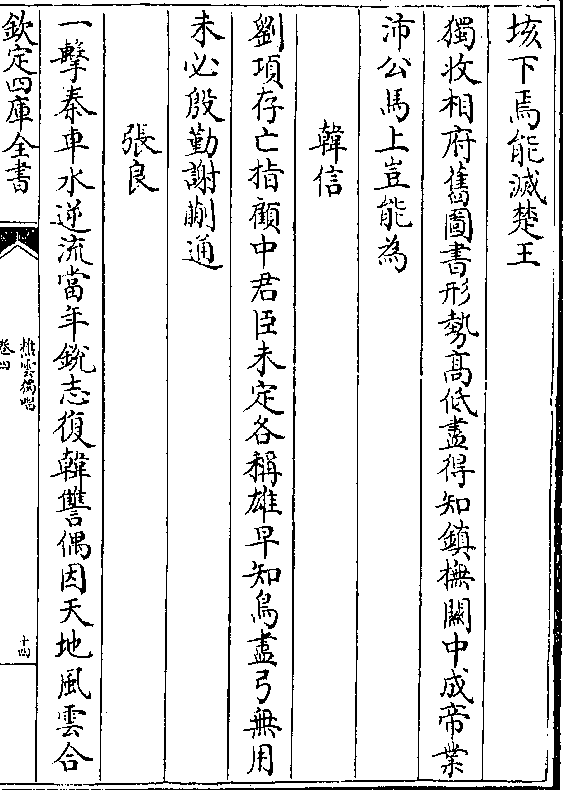 垓下焉能滅楚王
獨收相府舊圖書形勢髙低盡得知鎮撫關中成帝業
沛公馬上豈能為
韓信
劉項存亡指顧中君臣未定各稱雄早知鳥盡弓無用
未必殷勤謝蒯通
張良
一擊秦車水逆流當年銳志復韓讐偶因天地風雲合
欽定四庫全書
樵雲獨唱
卷四
十四